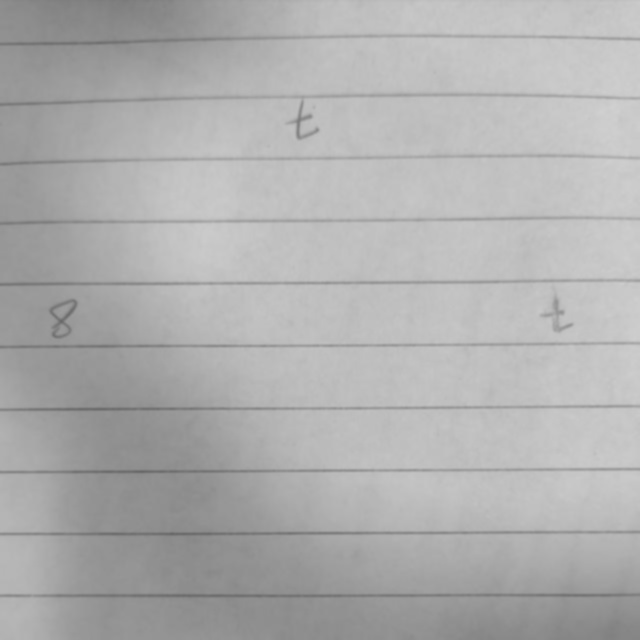 t
8 t